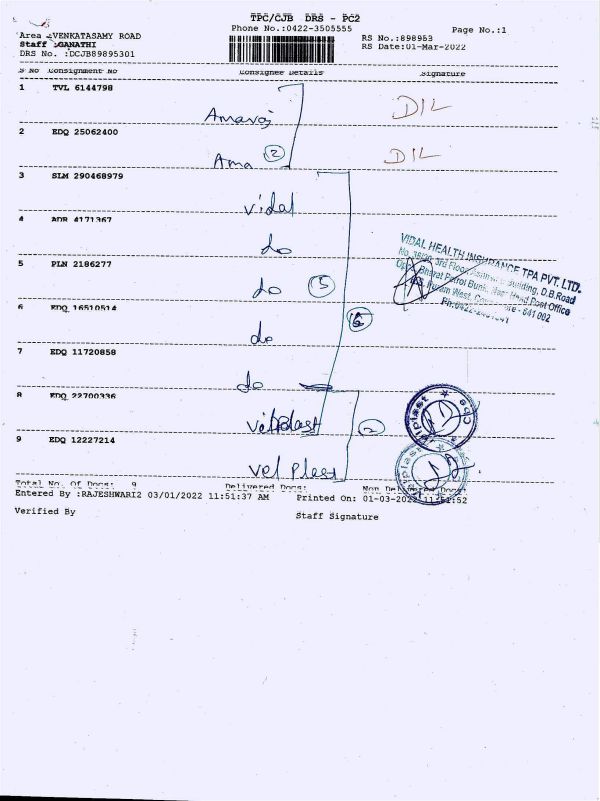 TPC/CJB DRS - PC2
Phone No.:0422-3505555
Page No.:1
Area :VENKATASAMY ROAD
RS No.:898953
Staff :GANATHI
RS Date:01-Mar-2022
DRS No. :DCJB89895301
S No Consignment No Consignee Details Signature
1 TVL 6144798
DIL
2 EDQ 25062400
Ama 2 DIL
3 SLM 290468979
vidal
4 ADR 4171367
do
VIDAL HEALTH INSURANCE TPA PVT. LTD.
5 PLN 2186277
3rd Floor, Building, D.B.Road
Opp. Bharat Petrol Bunk, Head Post Office
West, - 641 002
do 5
6 EDQ 16510514
6
do
7 EDQ 11720858
do
8 EDQ 22700336
2
Velplast Cbe
9 EDQ 12227214
vel plast
Total No. Of Docs: 9 Delivered Docs: Non Delivered Docs:
Entered By :RAJESHWARI2 03/01/2022 11:51:37 AM Printed On: 01-03-2022 11:51:52
Verified By
Staff Signature